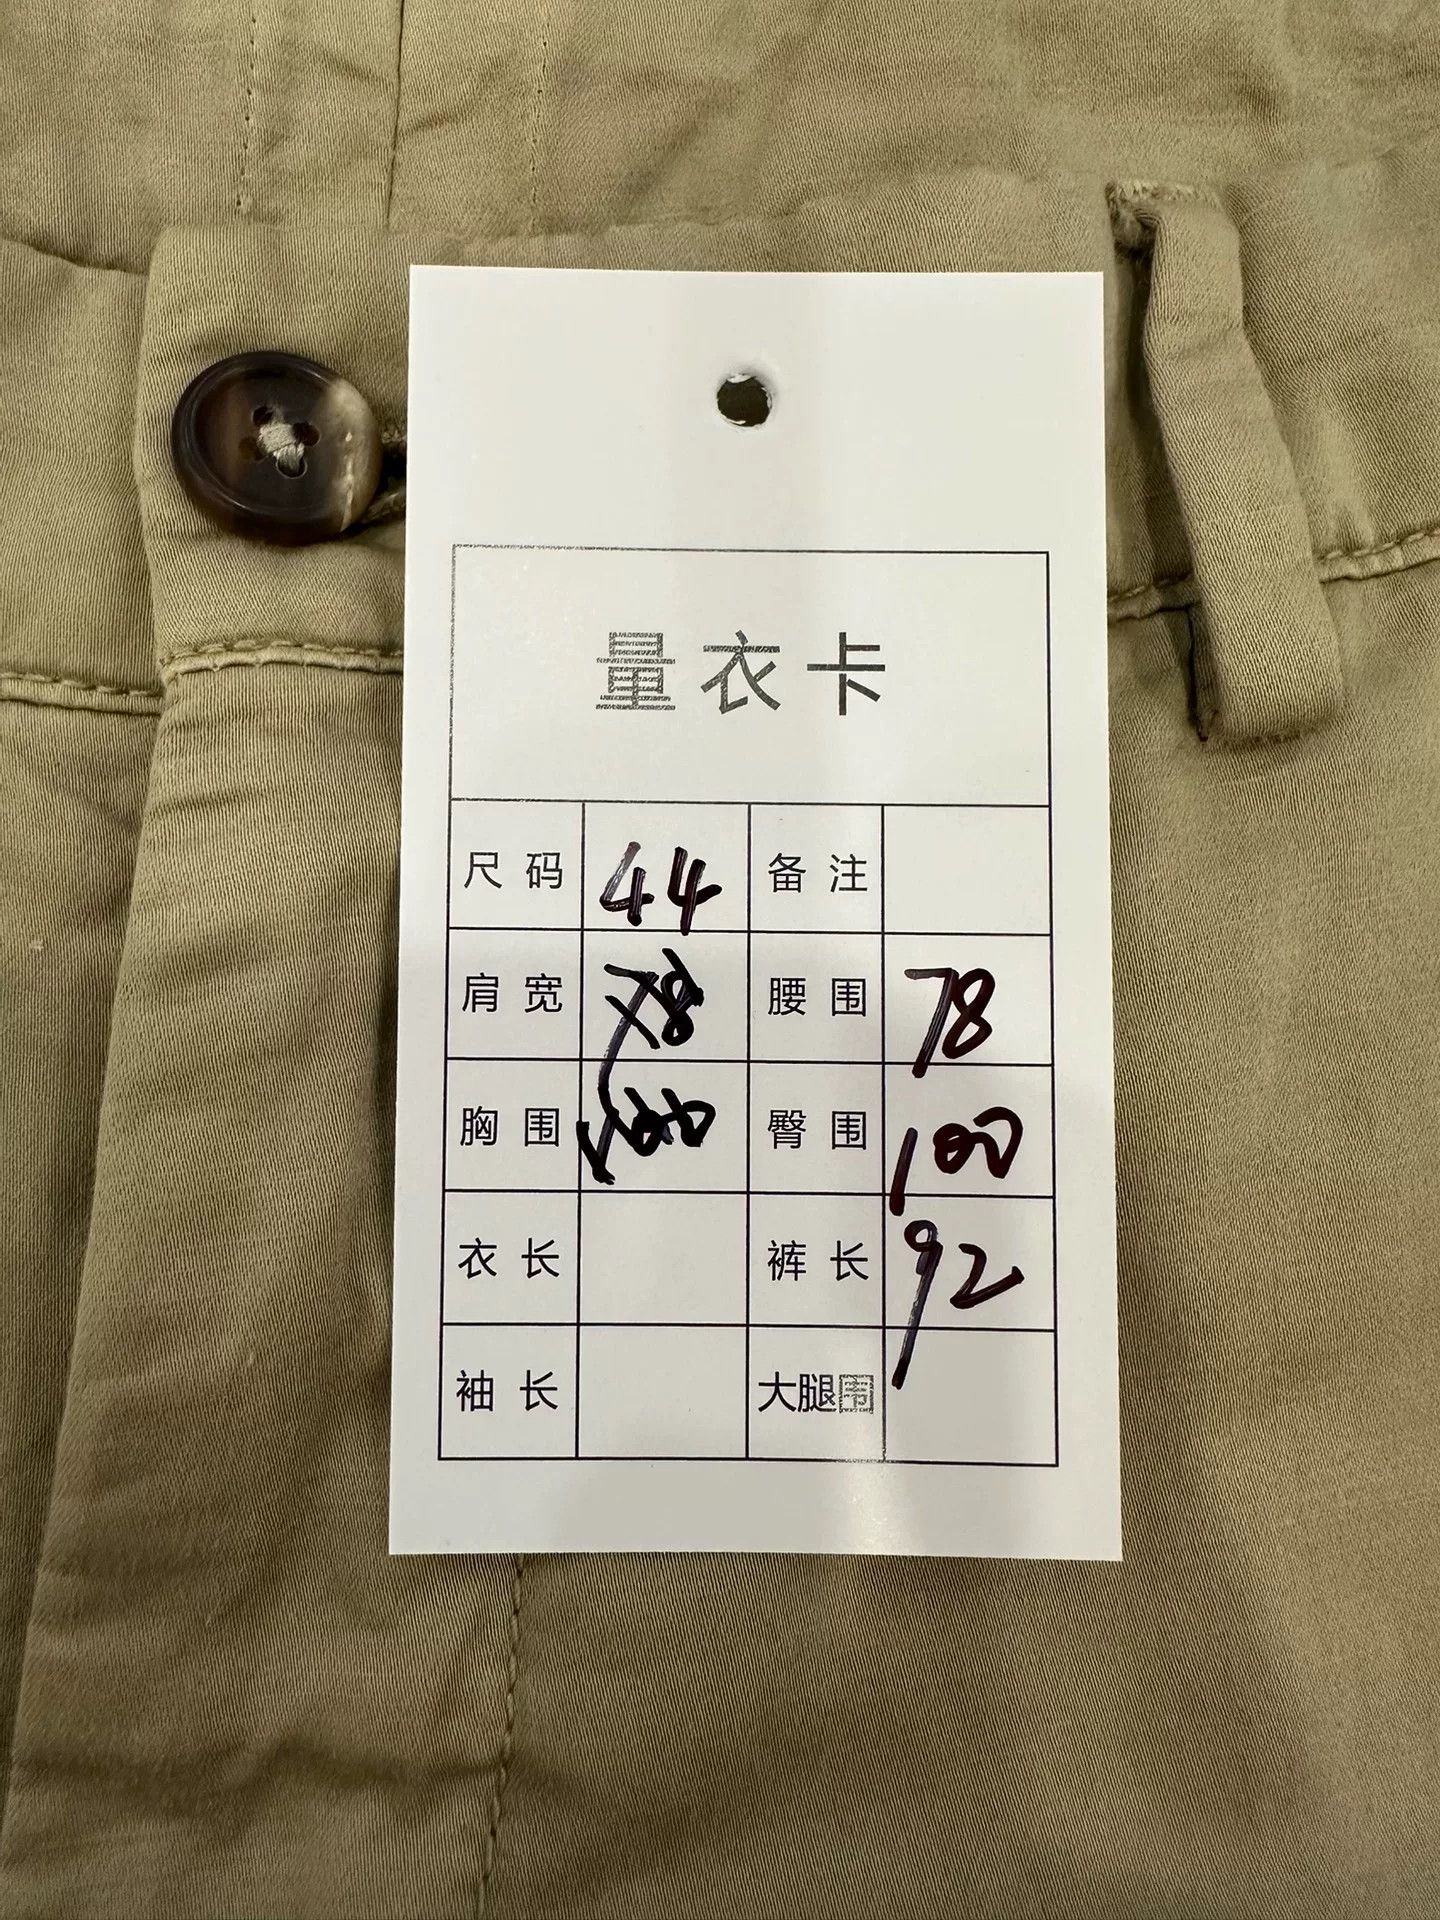 量衣卡
尺码 44 备注
肩宽 78 腰围 78
胸围 100 臀围 100
衣长 裤长 92
袖长 大腿围